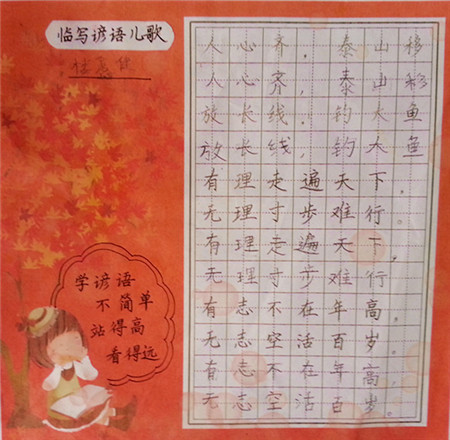 临写谚语儿歌
人心齐，泰山移
人心齐，泰山移
放长线，钓大鱼
放长线，钓大鱼
有理走遍天下。
无理寸步难行。
有理走遍天下，
无理寸步难行。
有志不在年高。
无志空活百岁。
有志不在年高，
无志空活百岁。
学谚语
不简单
站得高
看得远